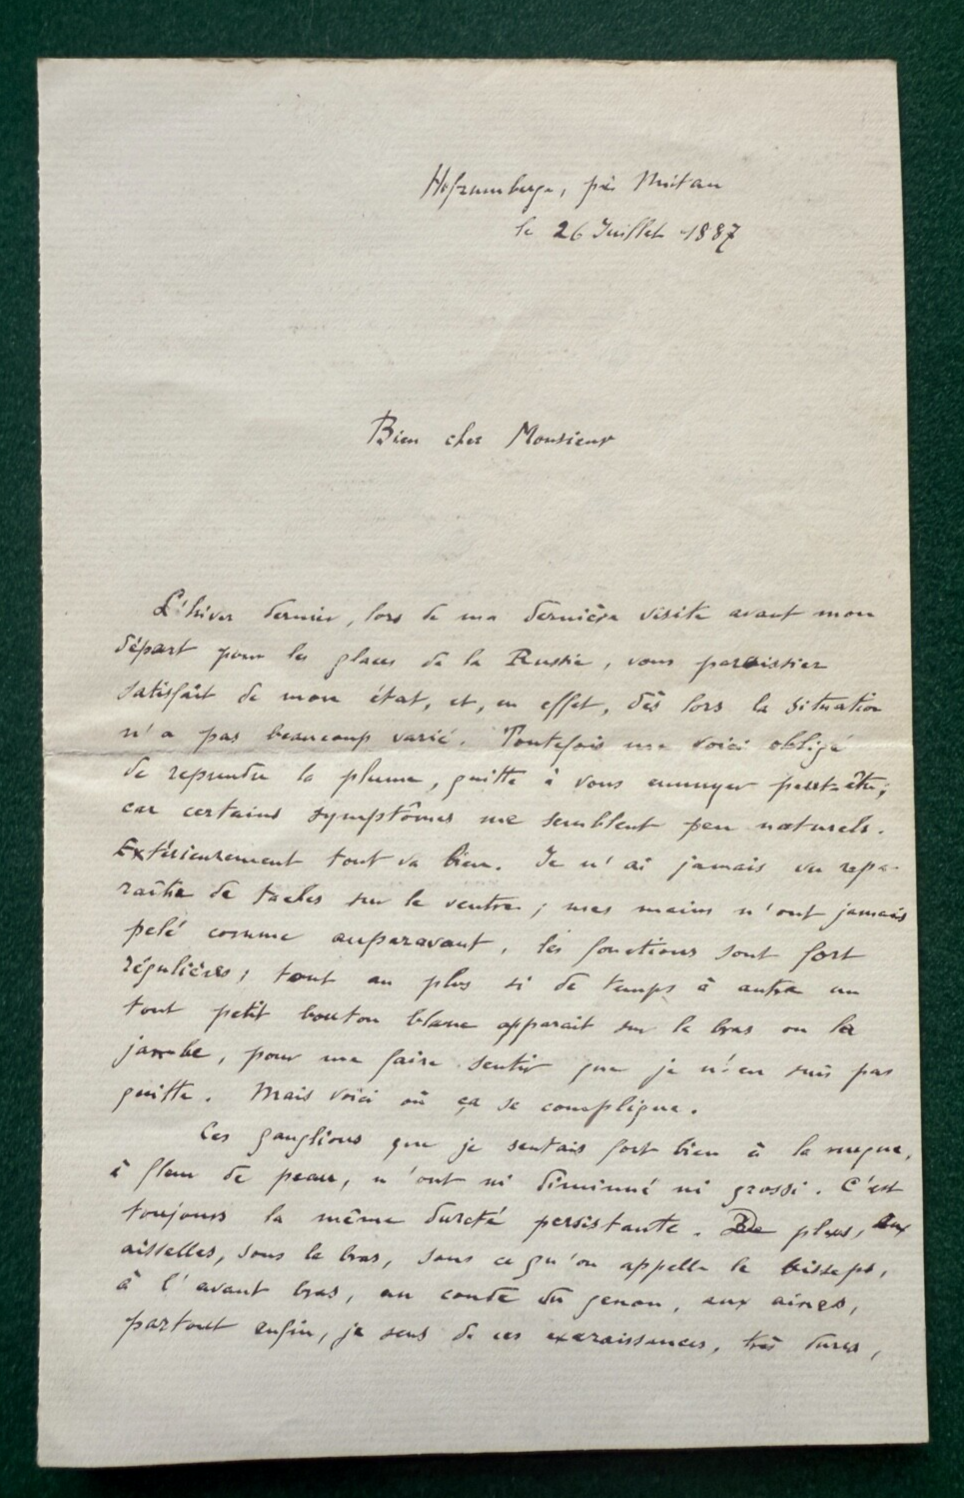 Hofzumberge, près Mitau
le 26 Juillet 1887
Bien cher Monsieur
L'hiver dernier, lors de ma dernière visite avant mon
départ pour les glaces de la Russie, vous paraissiez
satisfait de mon état, et, en effet, dès lors la situation
n'a pas beaucoup varié. Toutefois me voici obligé
de reprendre la plume, quitte à vous ennuyer peut-être;
car certains symptômes me semblent peu naturels.
Extérieurement tout va bien. Je n'ai jamais vu repa-
raître de taches sur le ventre; mes mains n'ont jamais
pelé comme auparavant, les fonctions sont fort
régulières; tout au plus si de temps à autre un
tout petit bouton blanc apparait sur le bras ou la
jambe, pour me faire sentir que je n'en suis pas
quitte. Mais voici où ça se complique.
Ces ganglions que je sentais fort bien à la nuque,
à fleur de peau, n'ont ni diminué ni grossi. C'est
toujours la même dureté persistante. De plus, aux
aisselles, sous le bras, sous ce qu'on appelle le bisseps,
à l'avant bras, au coude du genou, aux aines,
partout enfin, je sens de ces excraissances, très dures,